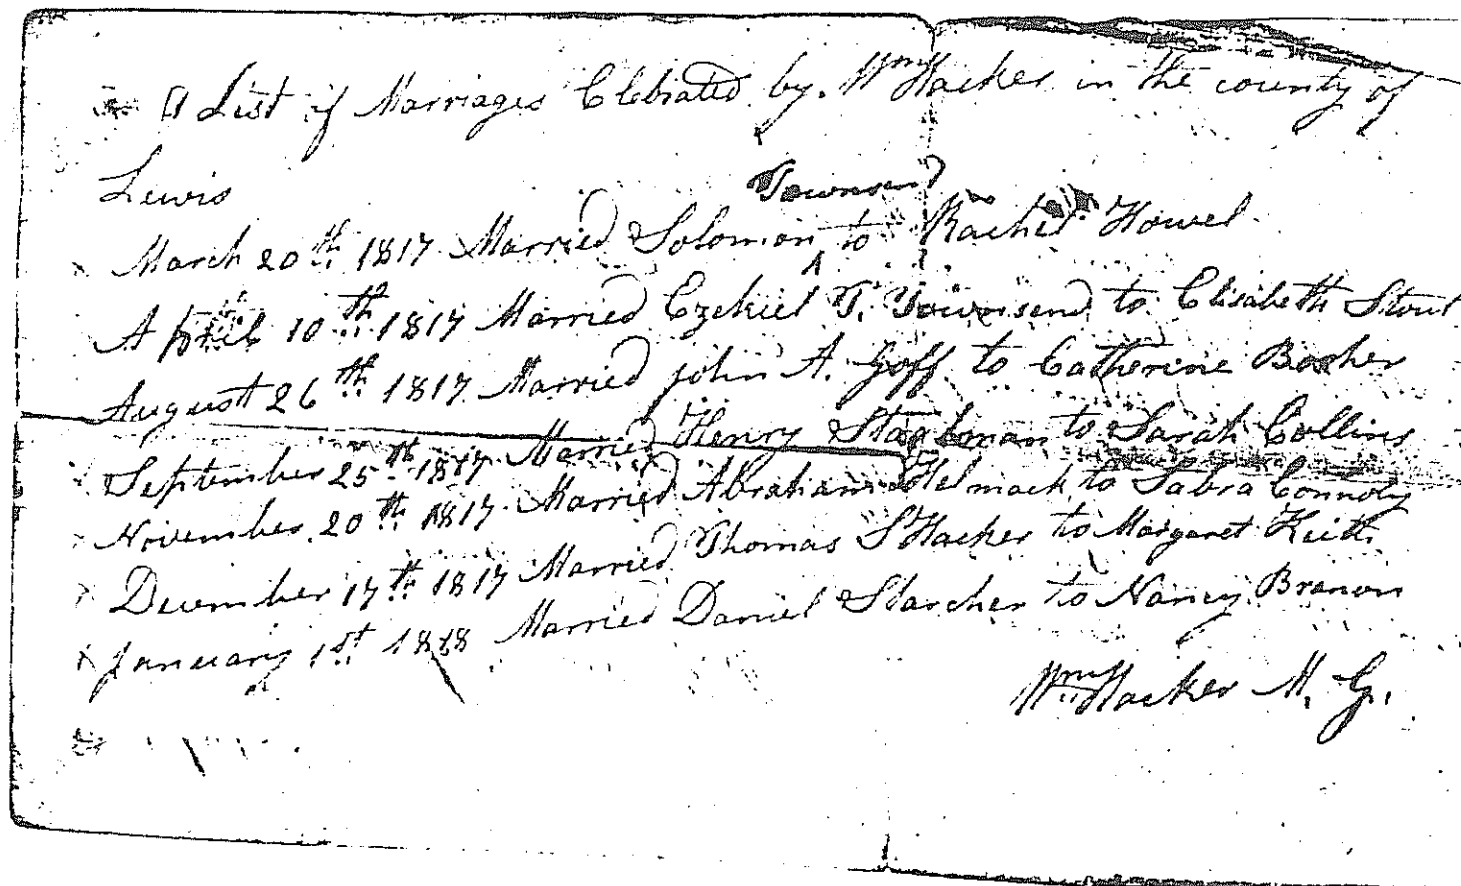 A List of Marriages Clebrated by Wm Hacker in the county of
Lewis
March 20th 1817 Married Solomon Townsend to Rachel Howel
April 10th 1817 Married Ezekiel T. Townsend to Elisabeth Stout
August 26th 1817 Married john A. Goff to Catherine Bosher
September 25th 1817 Married Henry to Sarah Collins
November 20th 1817 Married Abraham Helmack to Sabra Connoly
December 17th 1817 Married Thomas S Hacker to Margaret Keith
January 1st 1818 Married Daniel Starcher to Nancy Branon
Wm Hacker M. G.